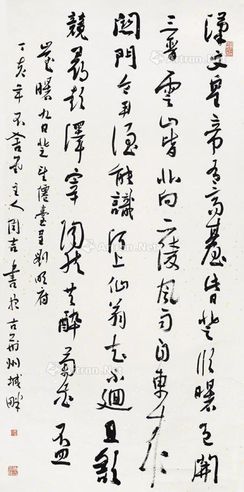 漢文皇帝有高臺此日登臨曙色開
三晉雲山皆北向二陵風雨自東来
關門令尹誰能識河上仙翁去不迴且欲
競尋彭澤宰陶然共醉菊花盃
崔曙九日登望僊臺呈劉明府
丁亥年不主人周吉書於古荊州城畔